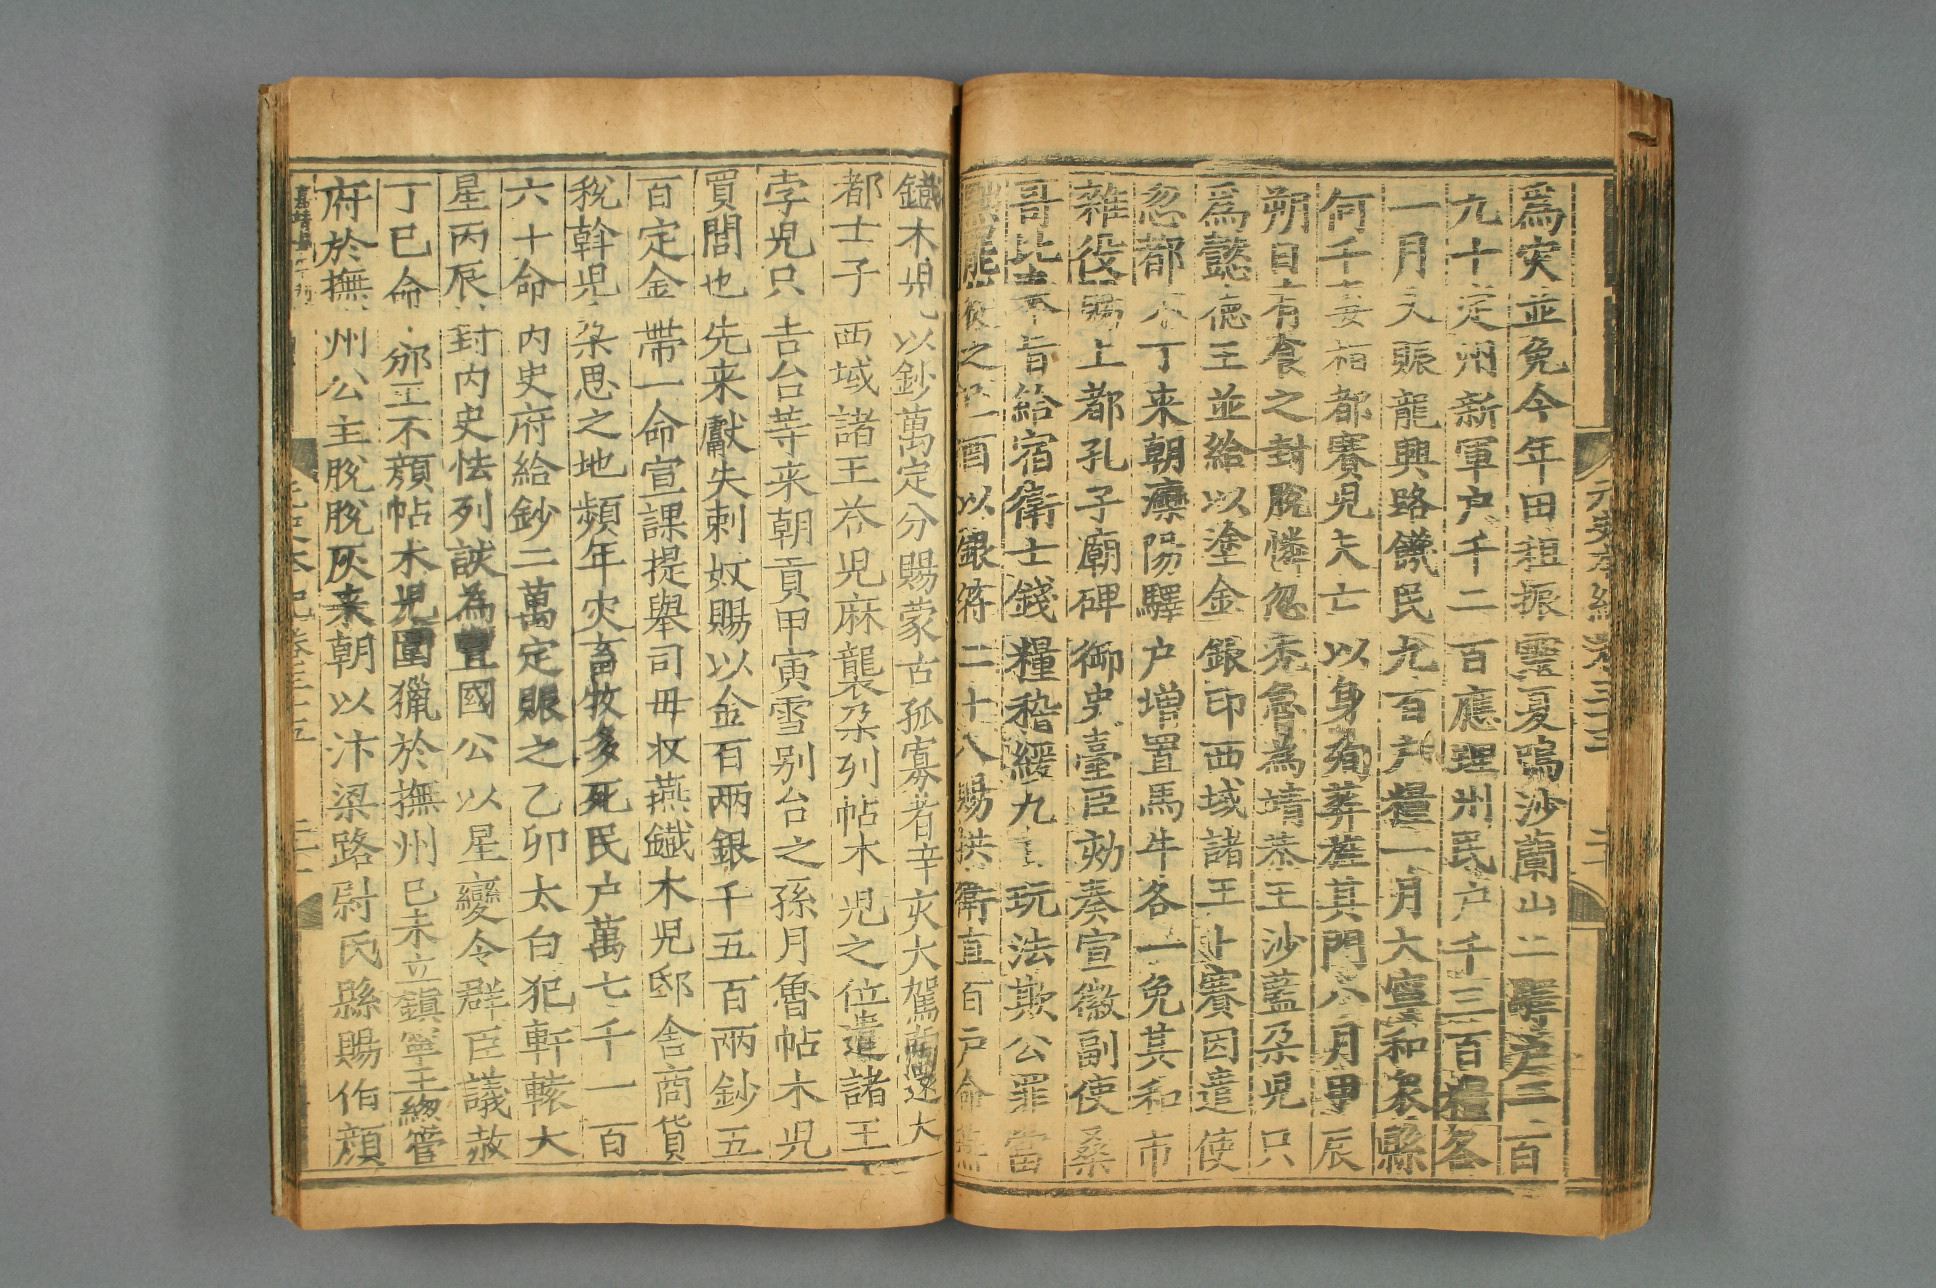 為灾並免今年田租振靈夏鳴沙蘭山二驛戶二百
九十定州新軍戶千二百應理州民戶千三百糧各
一月又賑龍興路饑民九百戶糧一月大寧和衆縣
何千妻栢都賽兒夫亡以身殉葬旌其門八月甲辰
朔日有食之封脫憐忽禿魯為靖恭王沙藍朵兒只
為懿德王並給以塗金銀印西域諸王卜賽因遣使
忽都不丁来朝灤陽驛戶增置馬牛各一免其和市
雜役賜上都孔子廟碑御史臺臣劾奏宣徽副使桑
哥比奉旨給宿衛士錢糧稽緩九 玩法欺公罪當
黜罷從之 一酉以銀符二十八賜拱衛直百戶命燕
鐵木兒以鈔萬定分賜蒙古孤寡者辛亥大駕南還大
都士子 西域諸王荅兒麻襲朵列帖木兒之位遣諸王
孛兒只吉台等来朝貢甲寅雪别台之孫月魯帖木兒
買閭也先来獻失剌奴賜以金百兩銀千五百兩鈔五
百定金帶一命宣課提舉司毋收燕鐵木兒邸舍商貨
稅斡兒朵思之地頻年灾畜牧多死民戶萬七千一百
六十命內史府給鈔二萬定賑之乙卯太白犯軒轅大
星丙辰封內史怯列該為豐國公以星變令群臣議赦
丁巳命邠王不顏帖木兒圍獵於撫州己未立鎮寧王緫管
府於撫州公主脫脫灰来朝以汴梁路尉氏縣賜伯顏
嘉靖
元史本紀卷三十五